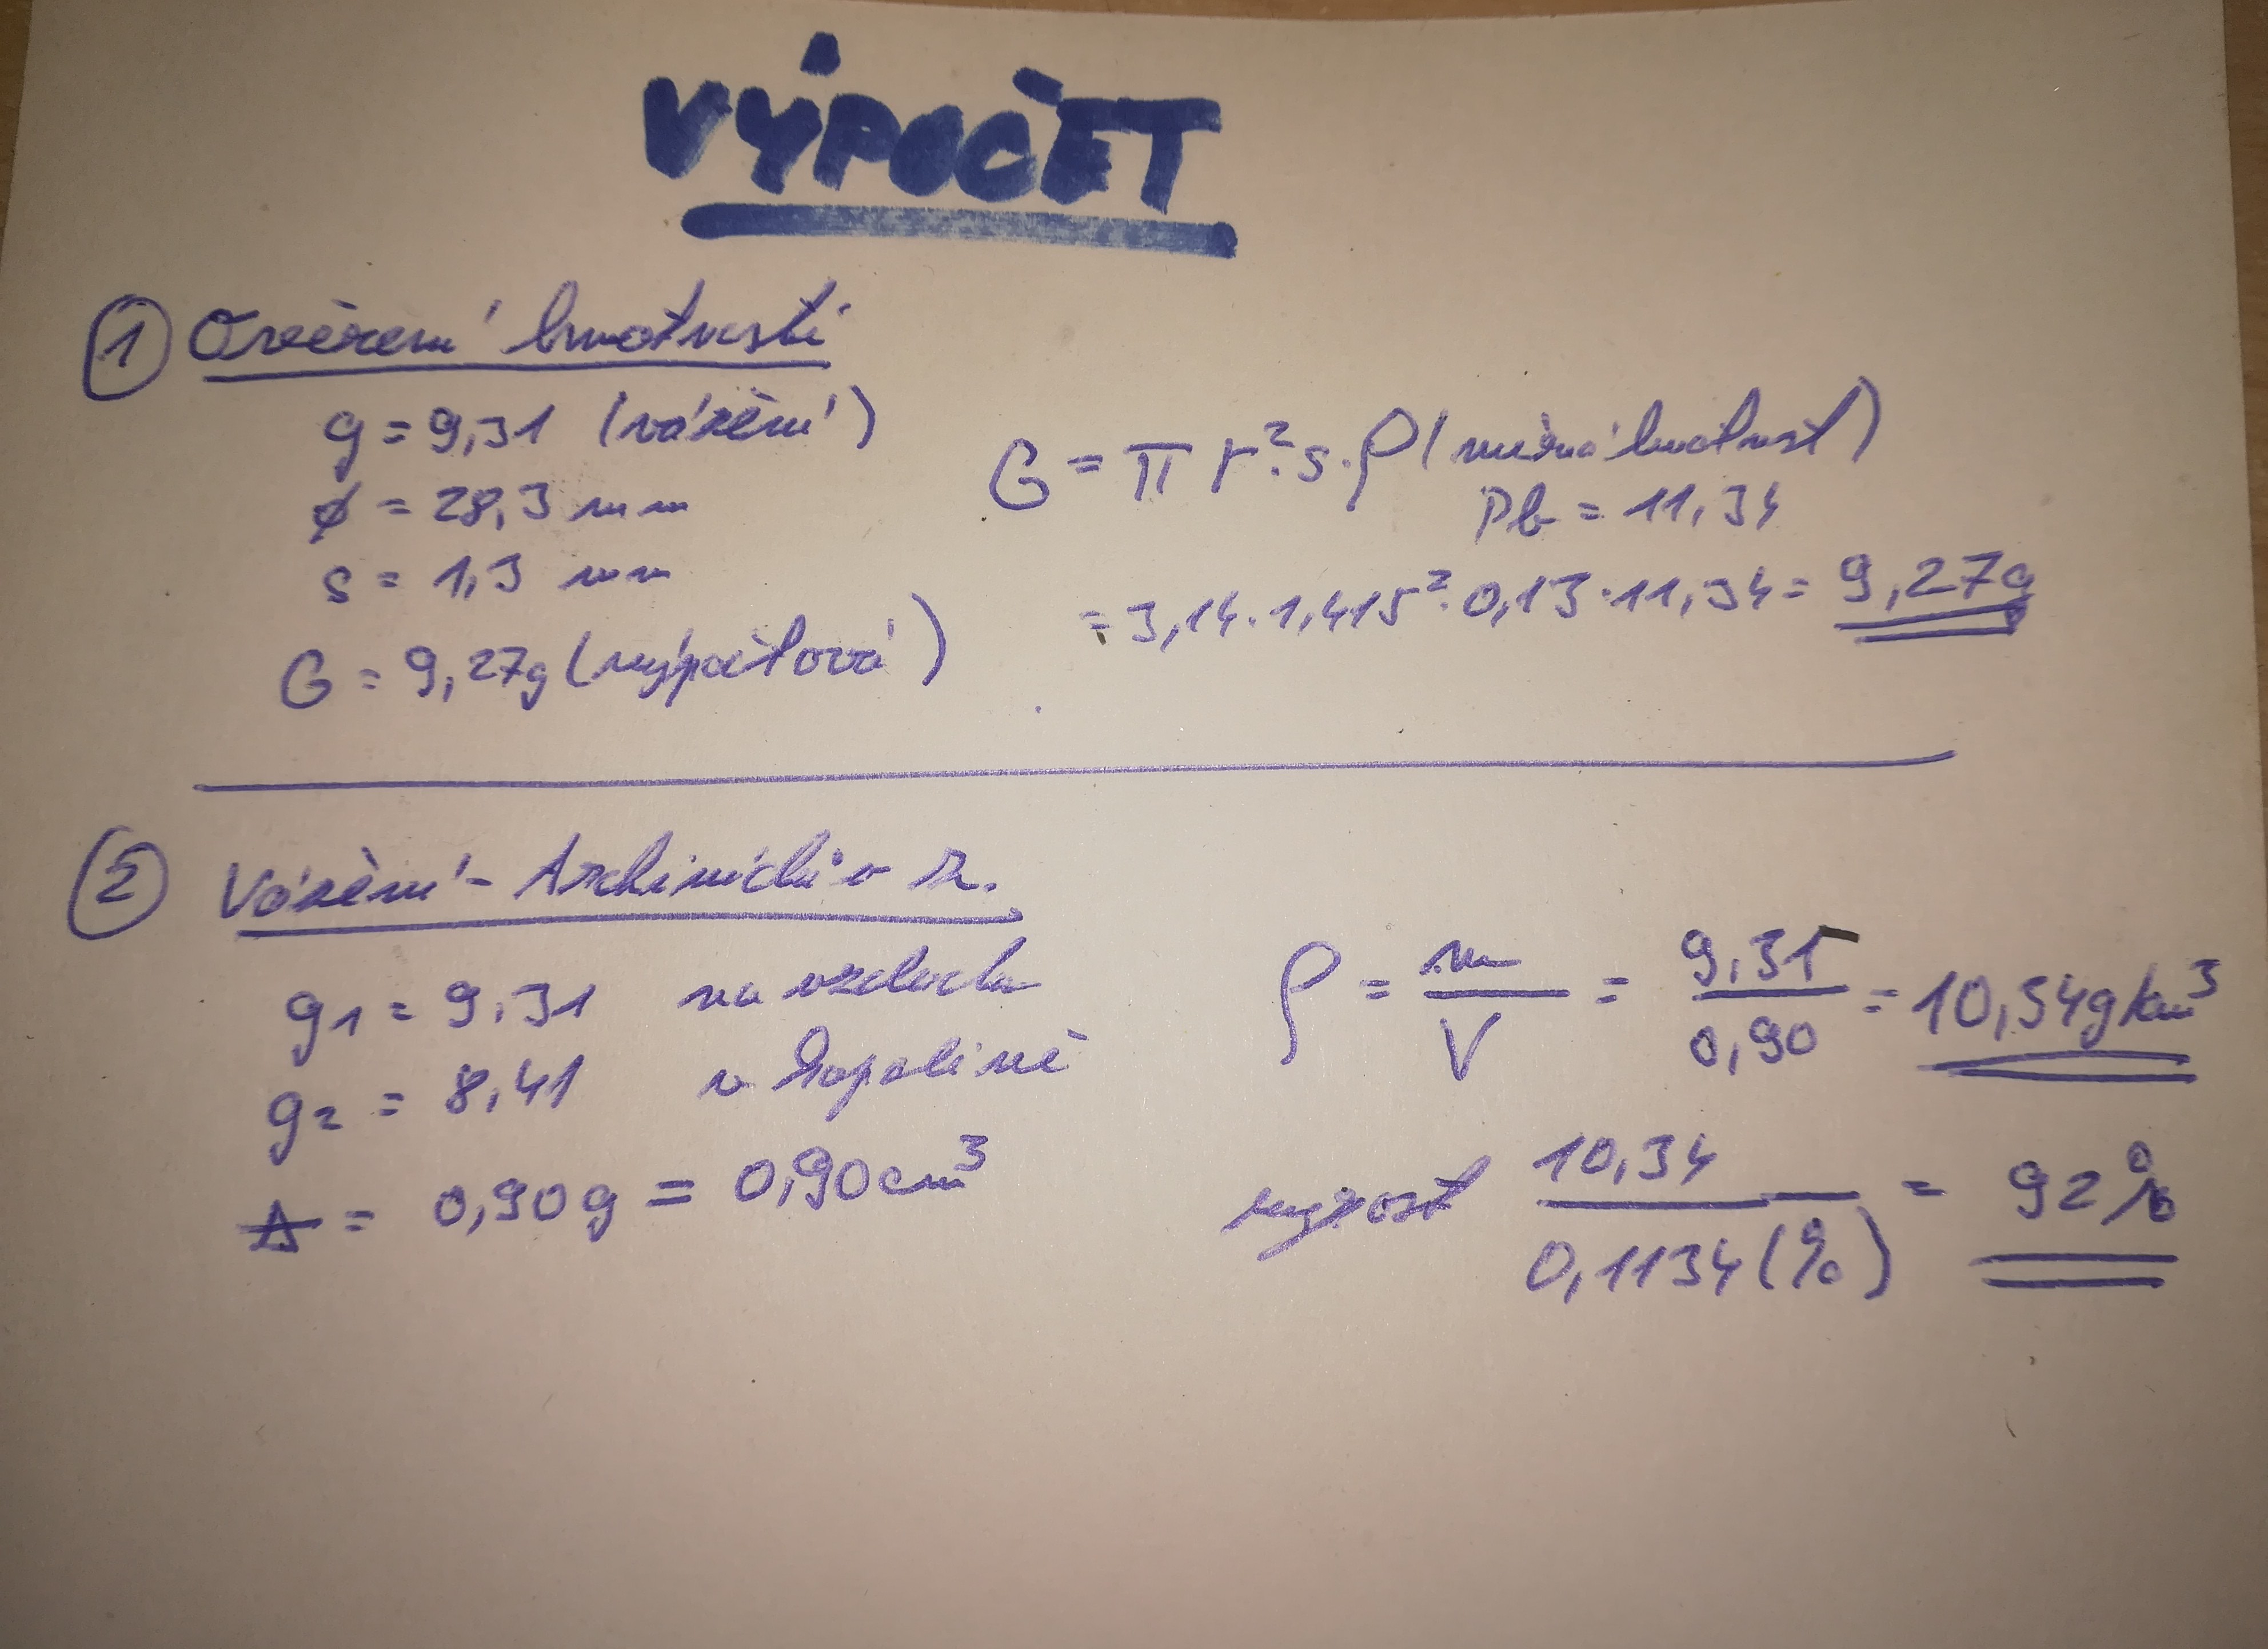 VÝPOČET
① Ověření hmotnosti
g = 9,31 (vážení)
ø = 28,3 mm
s = 1,3 mm
G = 9,27g (výpočtová)
G = π r². s. ρ (měrná hmotnost)
Pb = 11,34
= 3,14. 1,415². 0,13 . 11,34 = 9,27g
② Vážení - Archimédův z.
g1 = 9,31 na vzduchu
g2 = 8,41 v kapalině
Δ = 0,90g = 0,90cm³
ρ = m/V = 9,31/0,90 = 10,34g/cm³
ryzost 10,34/0,1134(%) = 92%